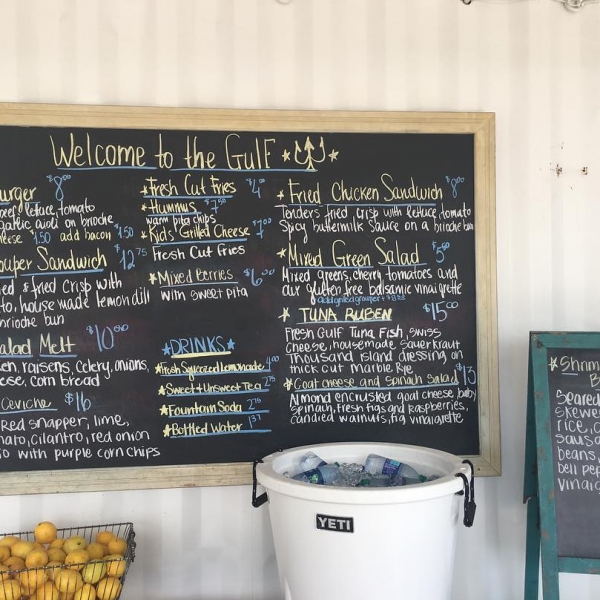 Welcome to the Gulf
urger $8
beef, lettuce, tomato
garlic aioli on brioche
cheese 1.50 add bacon $1.50
ouper Sandwich $12.75
ied & fried Crisp with
to, house made lemon dill
brioche bun
alad Melt $10.00
ken, raisens, celery, onions,
eese, corn bread
Ceviche $16
Red snapper, lime,
mato, cilantro, red onion
io with purple corn chips
Fresh Cut Fries $4
Hummus $7.50
warm pita chips
Kid's Grilled Cheese $7.00
Fresh Cut fries
Mixed Berries $6.00
with sweet pita
DRINKS
Fresh Squeezed Lemonade 4.00
Sweet & Unsweet Tea 2.75
Fountain Soda 2.75
Bottled Water
Fried Chicken Sandwich $8.00
Tenders fried crisp with lettuce, tomato
Spicy buttermilk Sauce on a brioche bun
Mixed Green Salad $5.00
Mixed greens, cherry tomatoes and
our gluten free balsamic vinaigrette
add grilled grouper
TUNA RUBEN $15.00
Fresh Gulf Tuna Fish, swiss
cheese, housemade, sauerkraut
Thousand island dressing on
thick cut Marble Rye
Goat cheese and Spinach Salad $13
Almond encrusted goat cheese, baby
spinach, fresh figs and raspberries,
candied walnuts, fig vinaigrette
YETI
Shrim
B
Seared
Skewer
rice, c
sausa
beans,
bell pep
vinaig